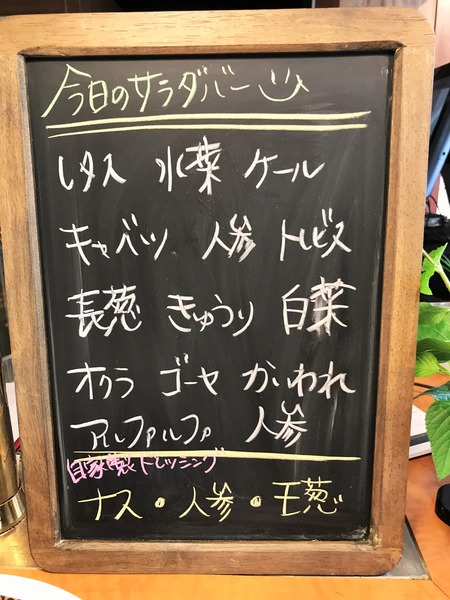 今日のサラダバー
レタス 水菜 ケール
キャベツ 人参 トレビス
長葱 きゅうり 白菜
オクラ ゴーヤ かいわれ
アルファルファ 人参
自家製ドレッシング
ナス・人参・玉葱